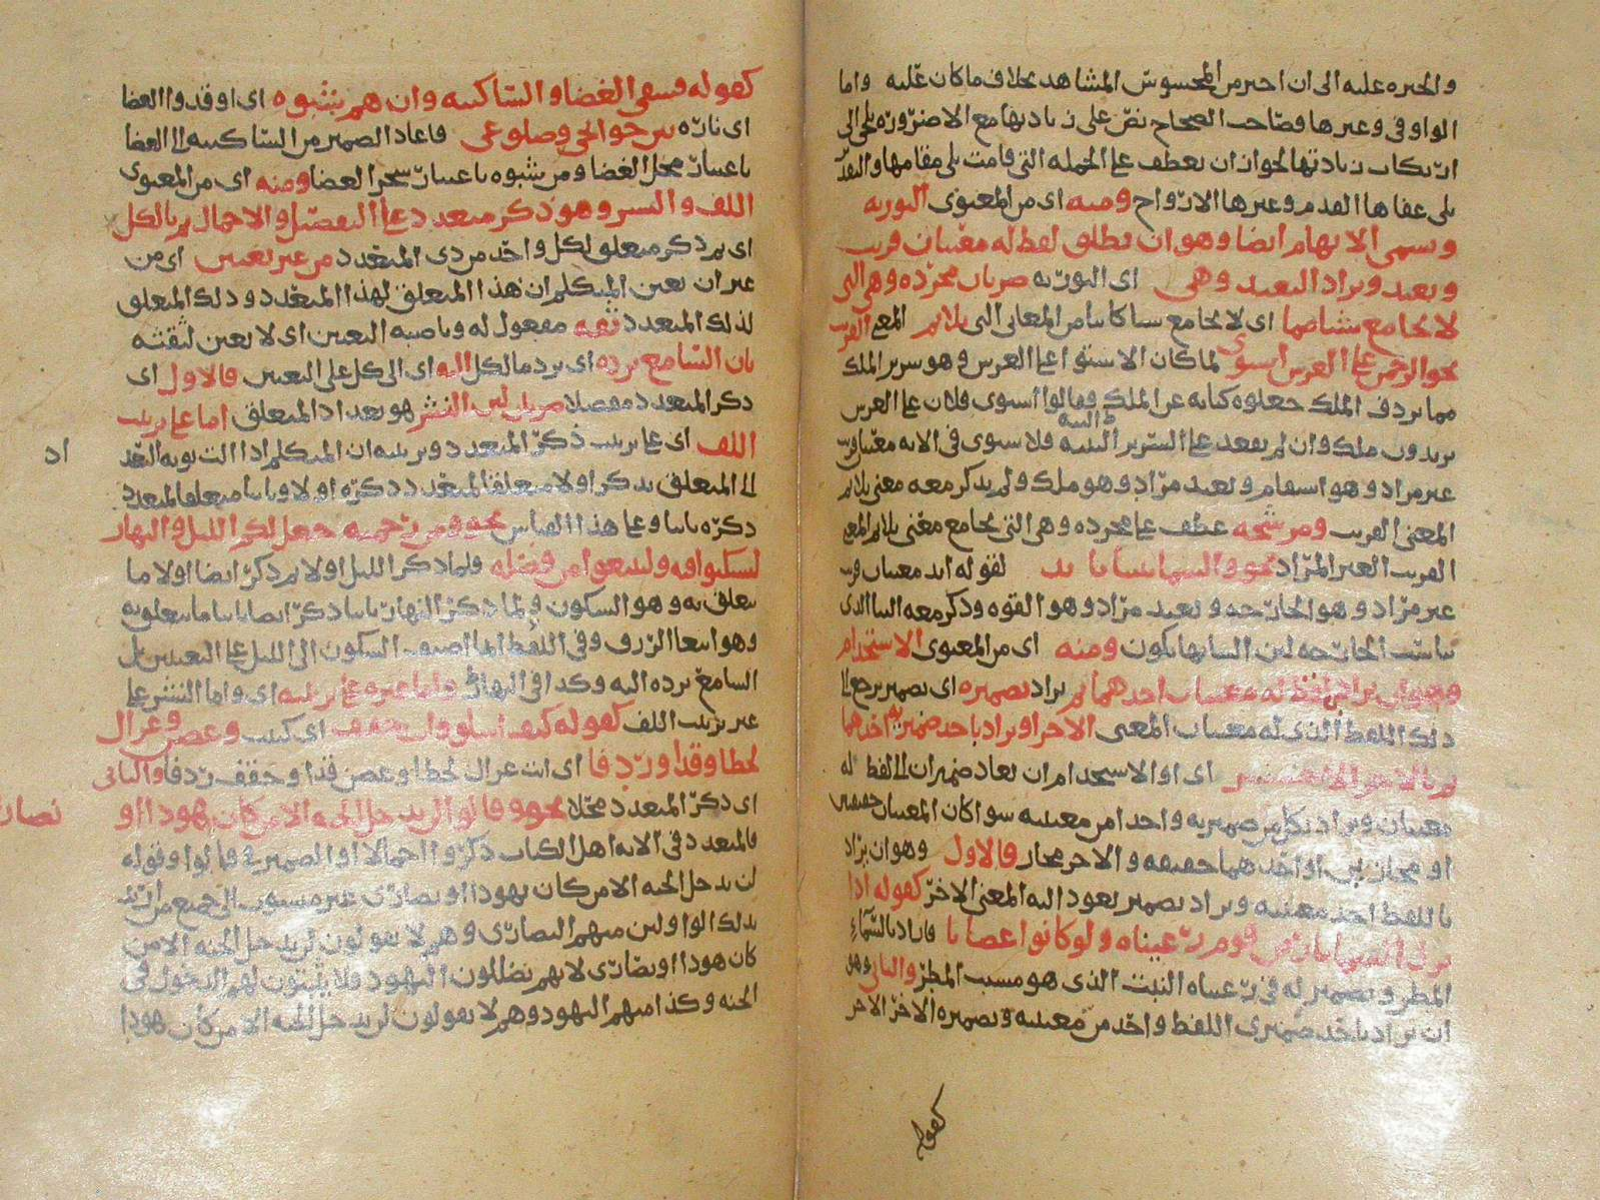 والخبره عليه الى ان اخبر من المحسوس المشاهد بخلاف ما كان عليه واما
الواو فى وغيرها فصاحب الصحاح نص على زيادتها مع الا ضرورة تلجى الى
ارتكاب زيادتها لجواز ان تعطف على الجمله التى قامت بلى مقامها والتقدير
بلى عفاها القدم وغيرها الارواح ومنه اى من المعنوى التوريه
وتسمى الايهام ايضا وهو ان يطلق لفظ له معنيان قريب
وبعيد ويراد البعيد وهى اى التوريه ضربان مجرده وهى التى
لا تجامع شيا مما اى لا تجامع شيا كاينا من المعانى التى يلايم المعنى القريب
نحو الرحمن على العرش استوى لما كان الاستوا على العرش وهو سرير الملك
مما يردف الملك جعلوه كنايه عن الملك فقالوا استوى فلان على العرش
يريدون ملك وان لم يقعد على السرير البته فلاستوى فى الايه معنى قريب
غير مراد وهو استقام وبعيد مراد وهو ملك ولم يذكر معه معنى يلايم
المعنى القريب ومرشحه عطف على مجرده وهى التى تجامع معنى يلايم المعنى
القريب الغير المراد نحو والسما بنيناها بايد لقوله ايد معنيان قريب
غير مراد وهو الجارحه وبعيد مراد وهو القوه وذكر معه البنا الذى
يناسب الجارحه لان البنا بها يكون ومنه اى من المعنوى الاستخدام
وهو ان يراد بلفظ له معنيان احدهما ثم يراد بضميره اى بضمير يرجع الى
ذلك اللفظ الذى له معنيان المعنى الاخر او يراد باحد ضميريه احدهما
ثم بالاخر الاخر اى او الاستخدام ان يعاد ضميران الى لفظ له
معنيان ويراد بكل من ضميريه واحد من معنييه سوا كان المعنيان حقيقيين
او مجازيين او احدهما حقيقه والاخر مجاز فالاول وهو ان يراد
باللفظ احد معنييه ويراد بضمير يعود اليه المعنى الاخر كقوله اذا
نزل السما بارض قوم رعيناه ولو كانوا غضابا فاراد بالسماء
المطر وبضميره فى رعيناه النبت الذى هو مسبب المطر والثانى وهو
ان يراد باحد ضميرى اللفظ واحد من معنييه وبضميره الاخر الاخر
كقوله
كقوله فسقى الغضا والساكنيه وان هم شبوه اى اوقدوا الغضا
اى ناره بين جوانحى وضلوعى فاعاد الضمير من الساكنيه الى الغضا
باعتبار محل الغضا ومن شبوه باعتبار شجر الغضا ومنه اى من المعنوى
اللف والنشر وهو ذكر متعدد على التفصيل والاجمال ثم ما لكل
اى ثم ذكر متعلق لكل واحد من ذى المتعدد من غير تعيين اى من
غير ان يعين المتكلم ان هذا المتعلق لهذا المتعدد وذلك المتعلق
لذلك المتعدد ثقه مفعول له وناصبه التعيين اى لا يعين لثقته
بان السامع يرده اى يرد ما لكل اليه اى الى كل على التعيين فالاول اى
ذكر المتعدد مفصلا ضربان لان النشر هو تعداد المتعلق اما على ترتيب
اللف اى على ترتيب ذكر المتعدد وترتيبه ان المتكلم اذا اتت نوبه التعدد
اد
الى المتعلق يذكر اولا متعلق المتعدد ذكره اولا وثانيا متعلق المتعدد
ذكره ثانيا وعلى هذا القياس نحو ومن رحمته جعل لكم الليل والنهار
لتسكنوا فيه ولتبتغوا من فضله فلما ذكر الليل اولا ثم ذكر ايضا اولا ما
يتعلق به وهو السكون ولما ذكر النهار ثانيا ذكر ايضا ثانيا ما يتعلق به
وهو ابتغا الرزق وفى اللفظ لما اضيف السكون الى الليل على التعيين بل
السامع يرده اليه وكذا فى النهار واما على غير ترتيبه اى واما النشر على
غير ترتيب اللف كقوله كيف اسلو وانت حقف اى كثيب وغصن وغزال
لحظا وقدا وردفا اى انت غزال لحظا وغصن قدا وحقف ردفا والثانى
اى ذكر المتعدد مجملا نحو وقالوا لن يدخل الجنه الا من كان هودا او
نصارى
فالمتعدد فى الايه اهل الكتاب ذكروا اجمالا او الضمير فى قالوا وقوله
لن يدخل الجنه الا من كان يهودا او نصارى غيره منسوب الى جميع من اريد
بذلك الواو لان منهم النصارى وهم لا يقولون لن يدخل الجنه الا من
كان هودا او نصارى لانهم يضللون اليهود فلا يثبتون لهم الدخول فى
الجنه وكذا منهم اليهود وهم لا يقولون لن يدخل الجنه الا من كان هودا